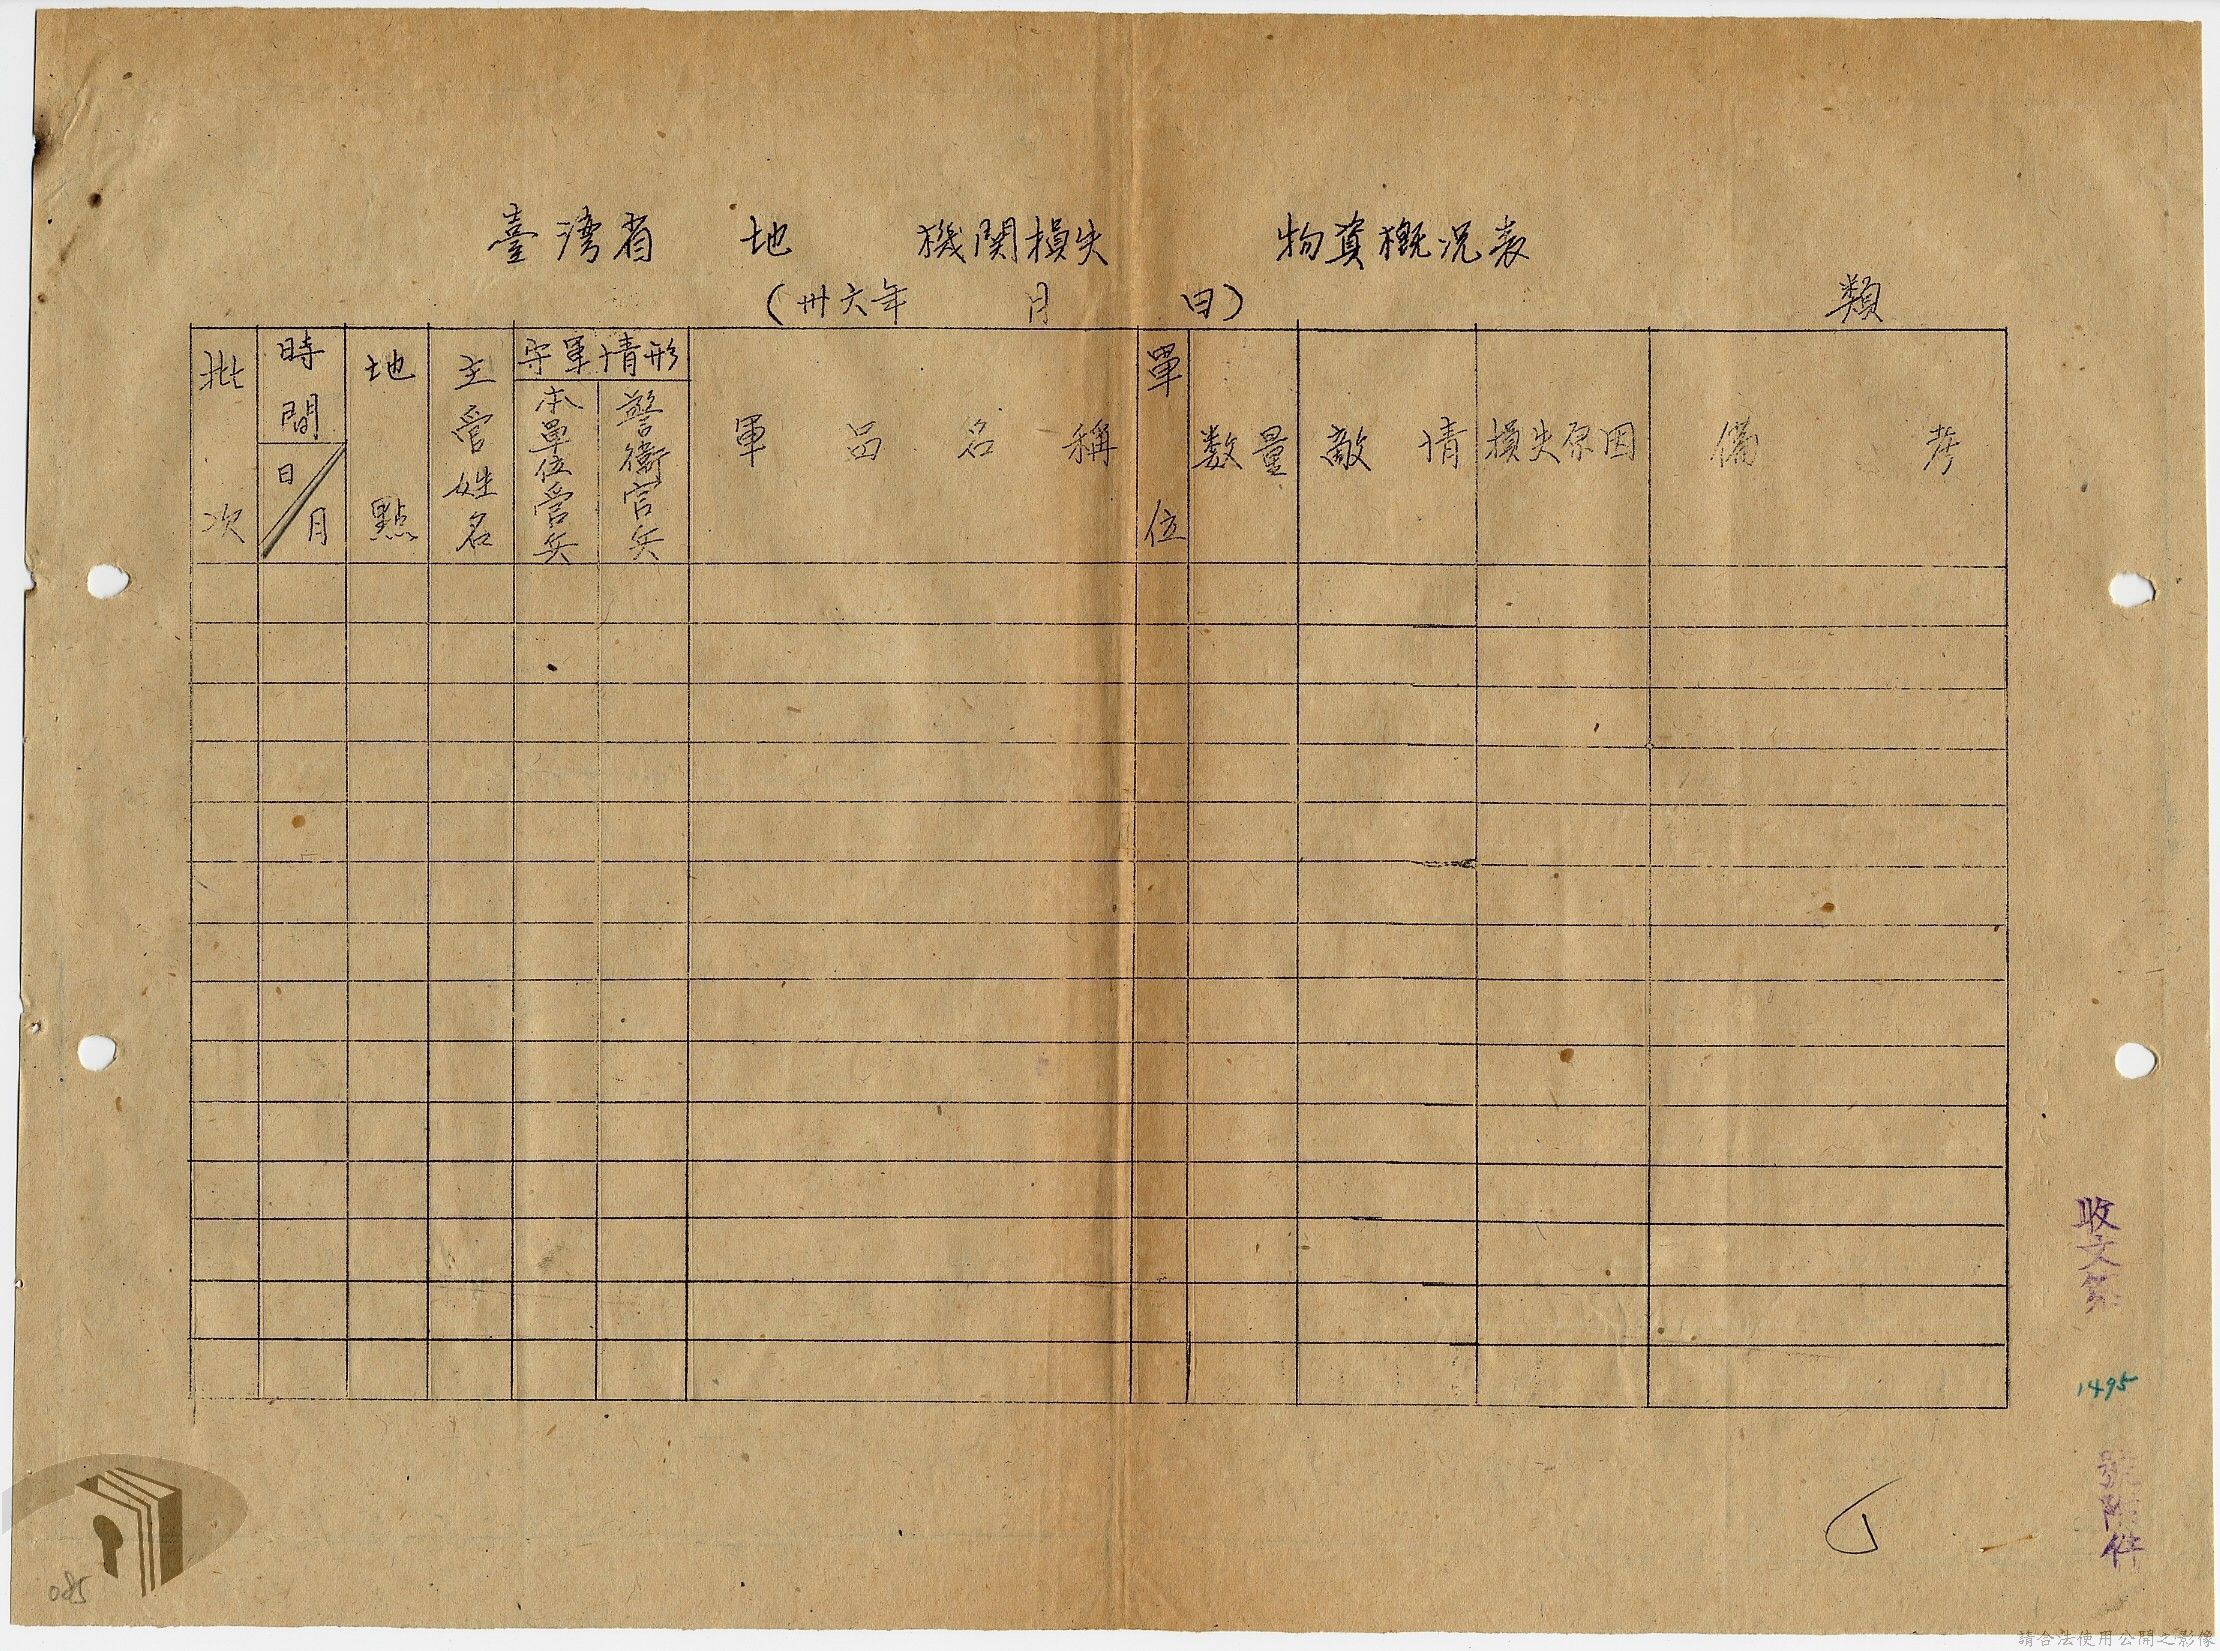 臺湾省　地　機関損失　物資概況表
(卅六年　月　日)
類
批次
時間
日/月
地點
主管姓名
守軍情形
本單位官兵
警衛官兵
軍品名稱
單位
数量
敵情
損失原因
備考
收文第
1495
號附件
085
請合法使用公開之影像